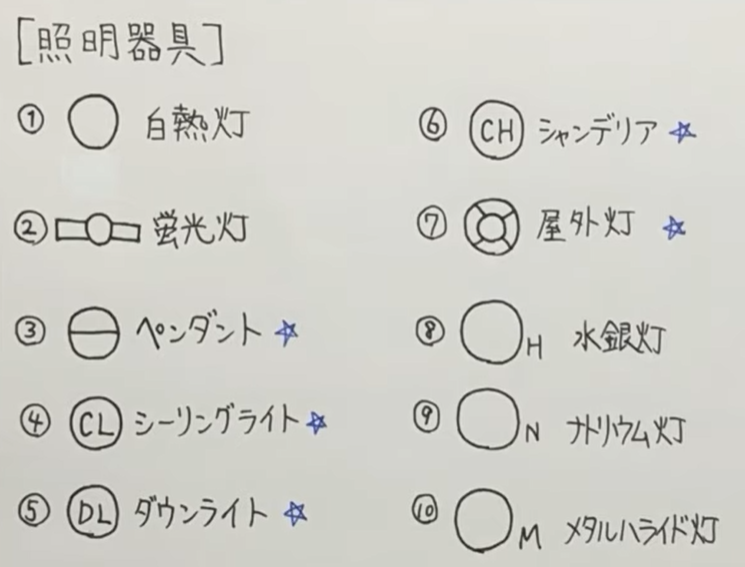 [照明器具]
① 白熱灯
② 蛍光灯
③ ペンダント ☆
④ CL シーリングライト ☆
⑤ DL ダウンライト ☆
⑥ CH シャンデリア ☆
⑦ 屋外灯 ☆
⑧ H 水銀灯
⑨ N ナトリウム灯
⑩ M メタルハライド灯